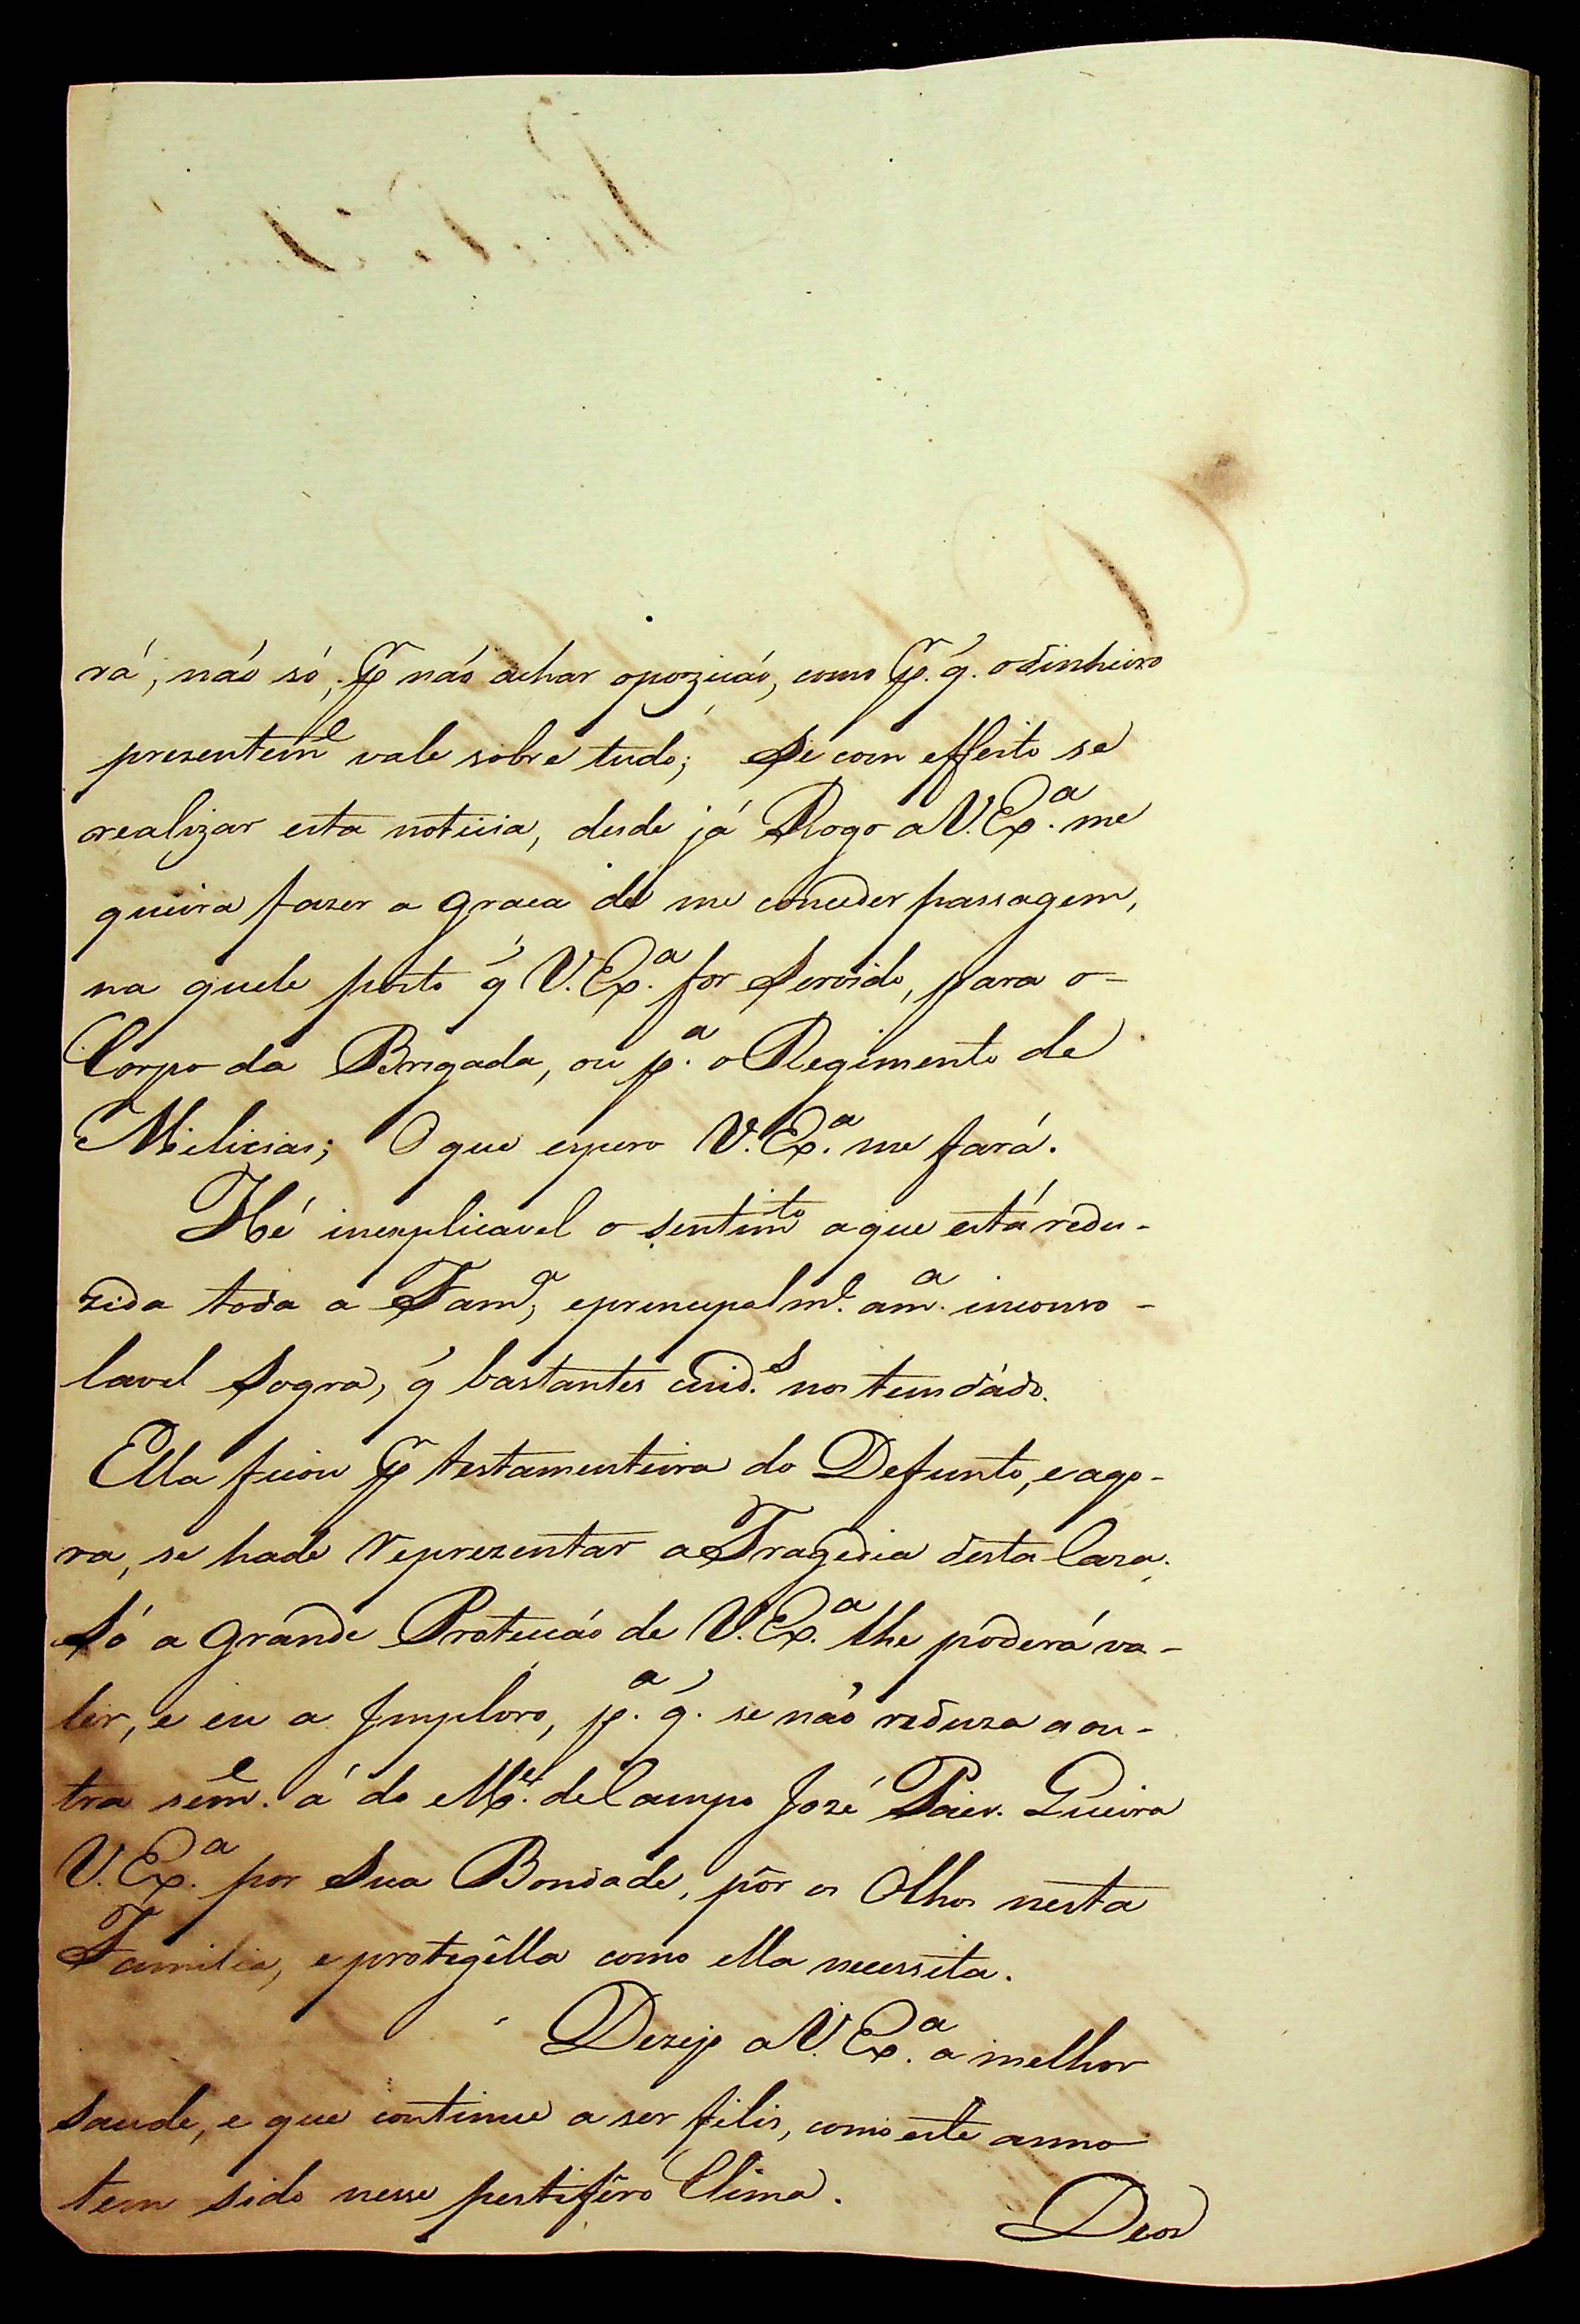 rá, não só, pr não achar opozicão, como pr. q. o dinheiro
prezentemᵉ vale sobre tudo; Se com effeito se
realizar esta noticia, desde já Rogo a V. Exᵃ. me
queira fazer a graca de me conceder passagem,
na quele posto q̃ V. Exᵃ. for Servido, para o
Corpo da Brigada, ou pᵃ. o Regimento de
Milicias; O que espero V. Exᵃ. me fará.
Hé inexplicavel o sentimᵗᵒ a que está redu-
zida toda a Famᵃ, e principalmᵉ. a mᵃ. inconso-
lavel Sogra, q̃ bastantes cuidˢ. nos tem dádo.
Ella ficou pr testamenteira do Defunto, e ago-
ra, se hade reprezentar a Tragedia desta Caza.
Só a grande Protecão de V. Exᵃ. lhe póderá va-
ler, e eu a Imploro, pᵃ. q̃. se não reduza a ou-
tra semᵉ. á do Mᵉ. de Campo José Queira
V. Exᵃ. por Sua Bondade, pôr os Olhos nesta
Familia, e protegêlla como ella necessita.
Dezejo a V. Exᵃ. a melhor
saude, e que continue a ser felis, como este anno
tem sido nesse pestifêro Clima.
Deos